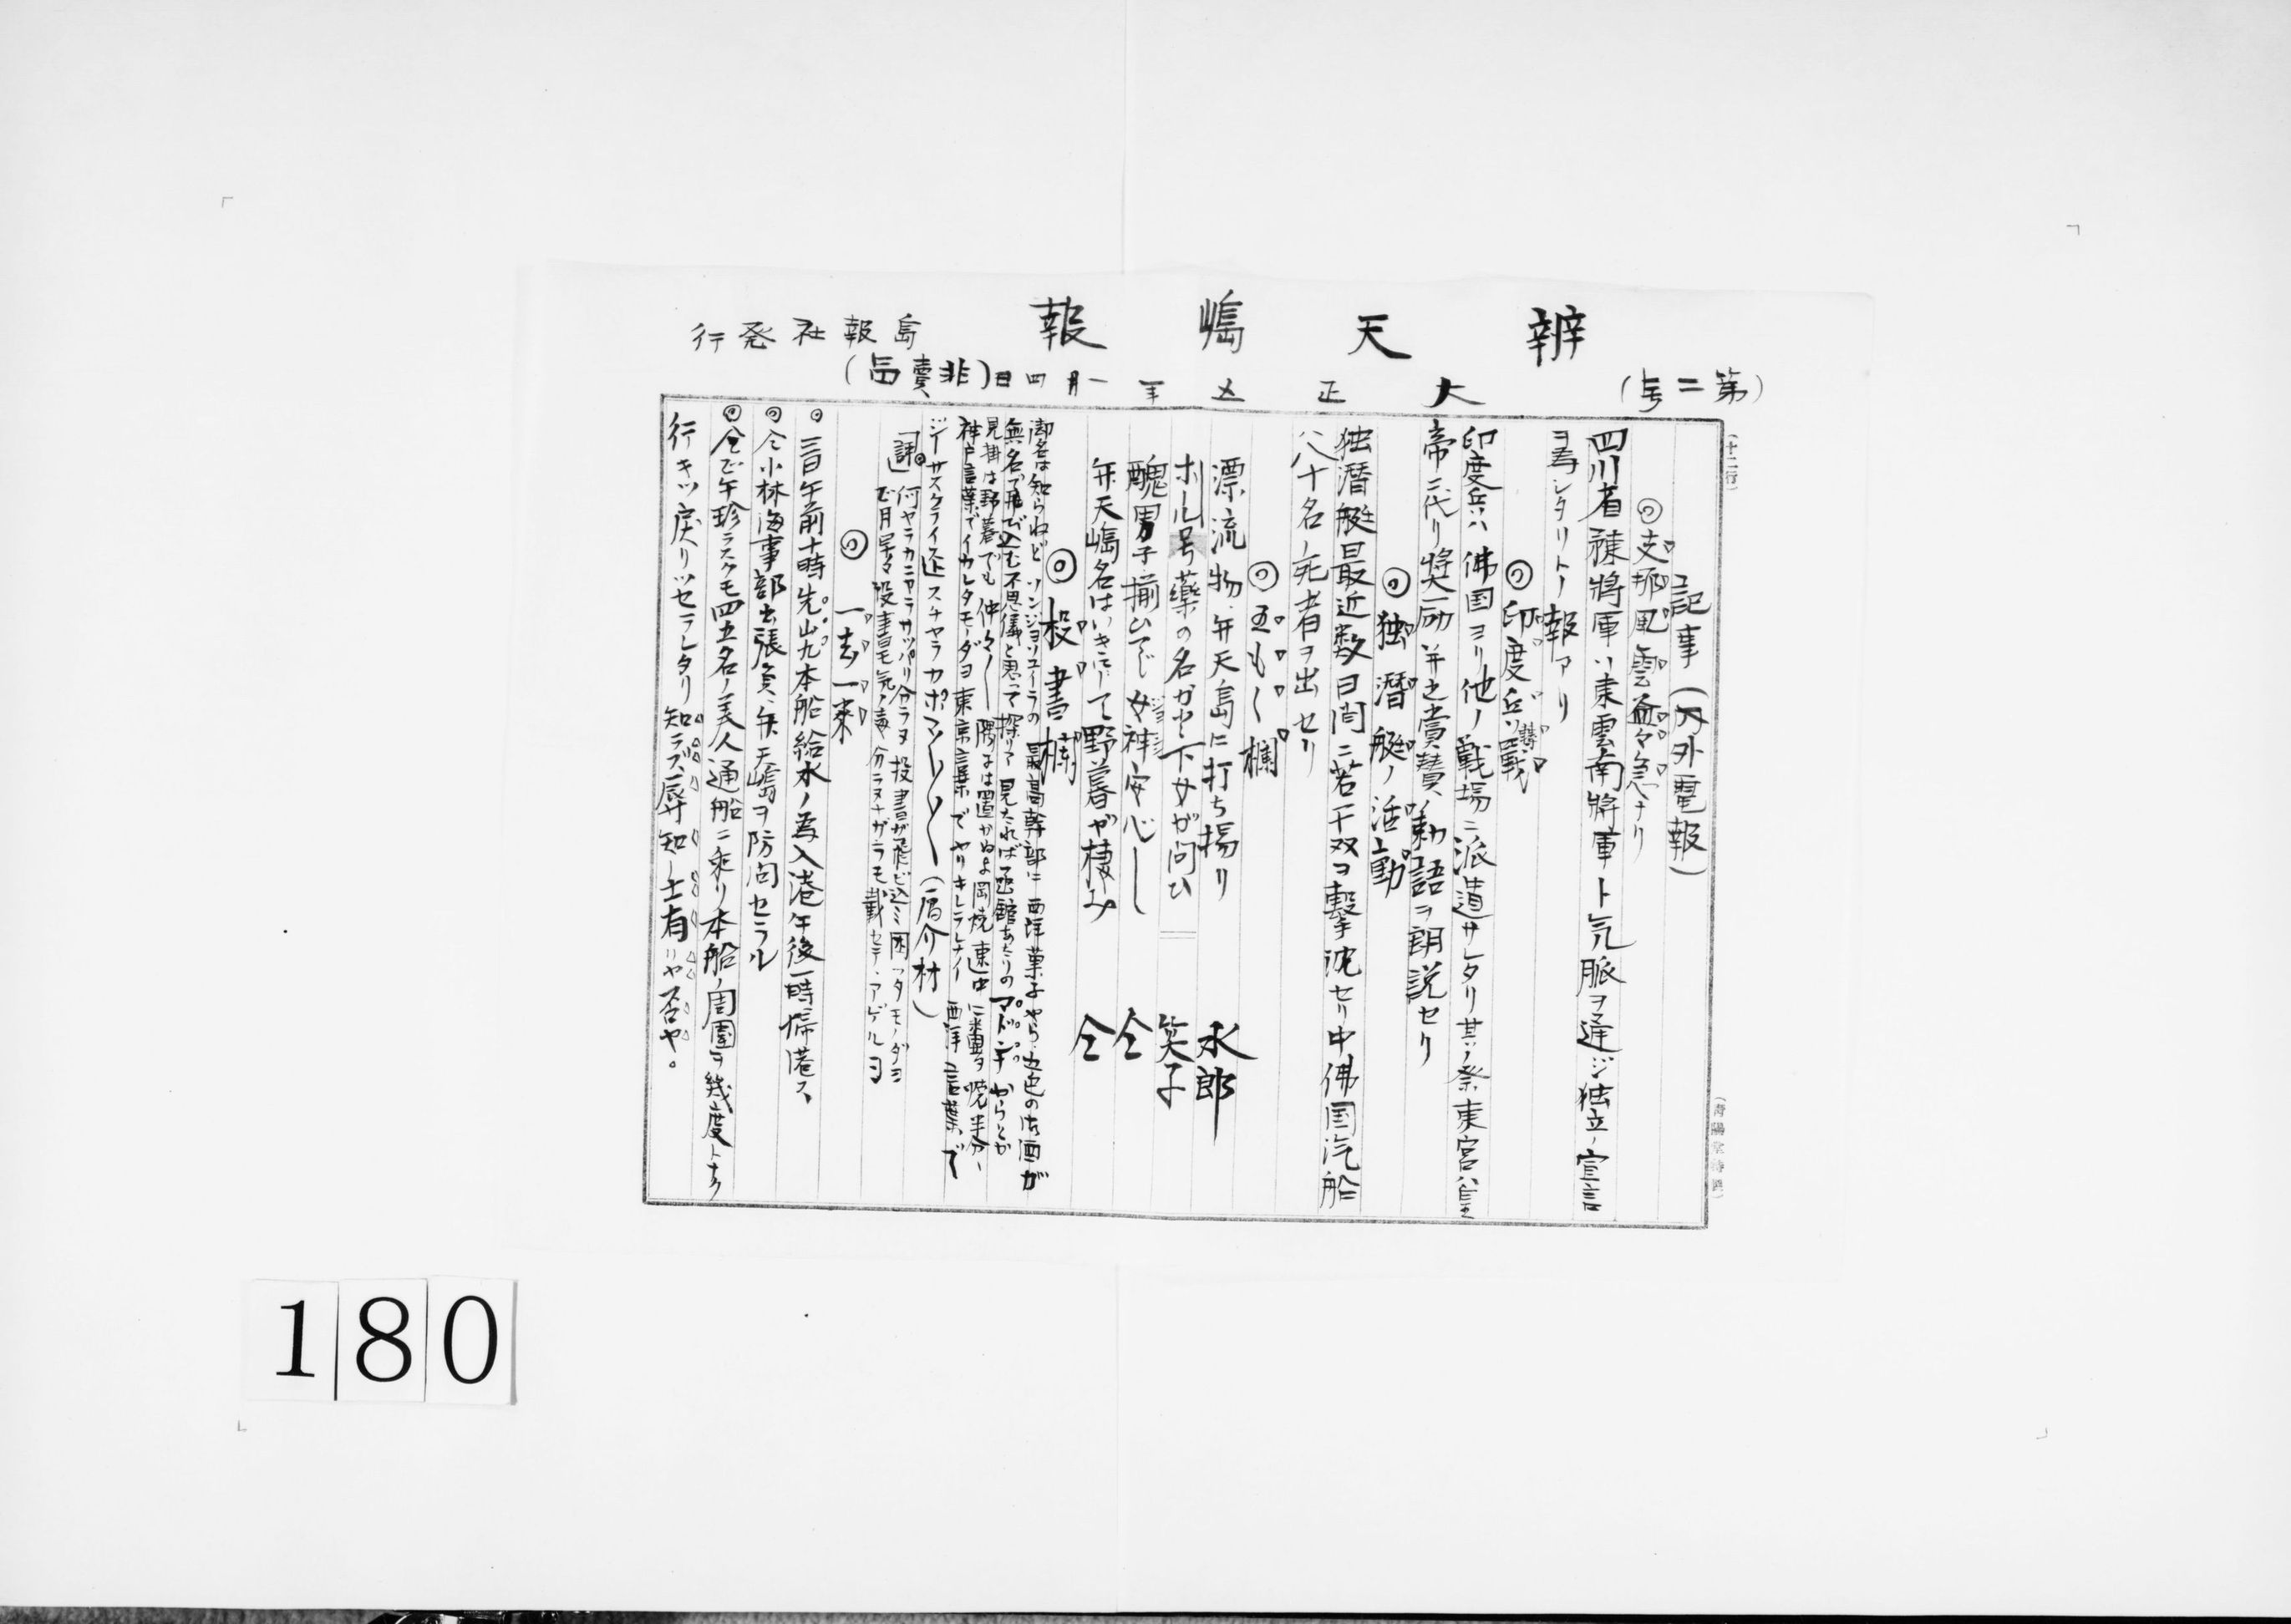 辨天嶋報
島報社発行
(第二号)
大正五年一月四日(非賣品)
(十二行)
記事(内外電報)
◎支那風雲益々急ナリ
四川省陳將軍ハ東雲南將軍ト気脈ヲ通ジ独立ノ宣言
ヲ為シタリトノ報アリ
◎印度兵ノ勝戰
印度兵ハ佛国ヨリ他ノ戰場ニ派遣サレタリ其ノ祭東宮ハ皇
帝ニ代リ奨励并之賞賛ノ勅語ヲ朗説セリ
◎独潜艇ノ活動
独潜艇最近数日間ニ若干双ヲ撃沈セリ中佛国汽船
八十名ノ死者ヲ出セリ
◎五も〱欄
漂流物弁天島に打ち揚り 永郎
ホール号藥の名かと下女が问ひ 笑子
醜男子揃ひで女神安心し 仝
弁天嶋名はいきにして野暮が棲み 仝
◎投書欄
御名は知らねどソンジョソコイラの最高幹部に西洋菓子やら五色の洋酒が
無名で飛び込む不思儀と思って探りて見たれば函館あたりのマドンナからとか
見掛は野暮でも仲々〱隅には置かぬよ岡焼連中に半分
神戸言葉でイカレタモーダヨ東京言葉でヤリキレラレナイ西洋言葉で
ジーサスクライスト迄スチャラカポン〱〱〱
「評」何ヤラカニヤラサッパリ分ラヌ投書ガ飛ビ込ミ困ッタモノダヨ
で月早々没書モ気ノ毒分ラヌナガラモ載セテアゲルヨ
◎一去一来
◎三日午前十時先山丸本船給水ノ為入港午後一時帰港ス
◎仝小林海事部出張員弁天嶋ヲ防问セラル
◎仝正午珍ラスクモ四五名ノ美人通船ニ乗リ本船ノ周圍ヲ幾度トナク
行キツ戻リツセラレタリ知ラズ辱知ノ士有リヤ否ヤ。
180